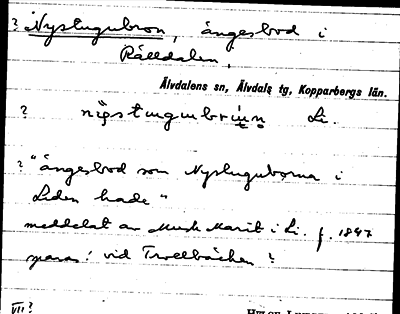 ? Nystugubron, ängesbod i
Rålldalen,
Älvdalens sn, Älvdals tg, Kopparbergs län.
? Li.
? "ängesbod som Nystuguborna i
Liden hade"
meddelat av Munk Marit i Li. f. 1847
vid Trollbäcken?
VII?